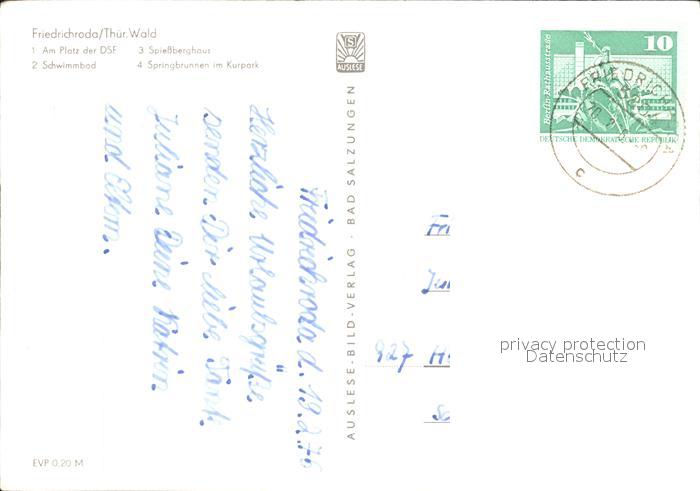 Friedrichroda/Thür. Wald
1 Am Platz der DSF 3 Spießberghaus
2 Schwimmbad 4 Springbrunnen im Kurpark
AUSLESE
Friedrichroda d. 19.2.76
Herzliche Urlaubsgrüße
senden Dir liebe Tante
Juliane Deine Katrin
und Eltern.
EVP 0,20 M
AUSLESE-BILD-VERLAG · BAD SALZUNGEN
10
Berlin, Rathausstraße
DEUTSCHE DEMOKRATISCHE REPUBLIK
FRIEDRICH
c
927 H
privacy protection
Datenschutz